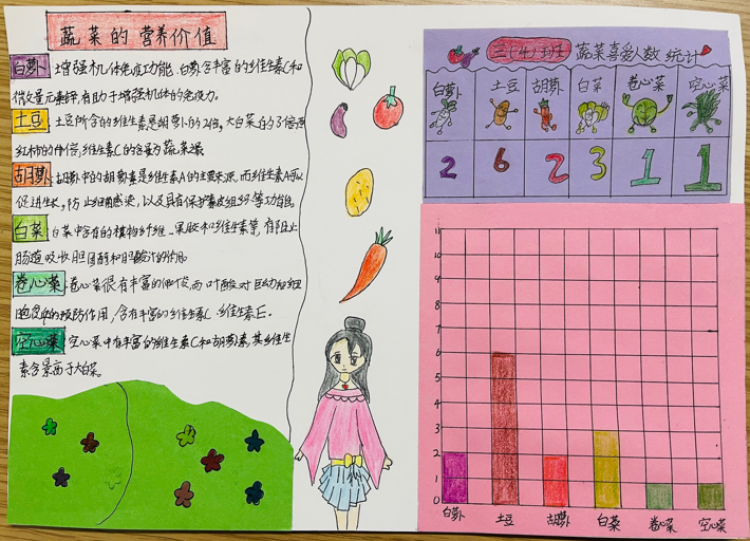 蔬菜的营养价值
白萝卜：增强机体免疫功能。白萝卜含丰富的维生素C和
微量元素锌，有助于增强机体的免疫力。
土豆：土豆所含的维生素是胡萝卜的2倍，大白菜的3倍
红柿的4倍，维生素C的含量为蔬菜之最
胡萝卜：胡萝卜中的胡萝素是维生素A的主要来源，而维生素A可以
促进生长，防止细菌感染，以及具有保护表皮组织等功能。
白菜：白菜中含有的植物纤维、果胶和维生素等，有阻止
肠道吸收胆固醇和胆酸汁的作用。
卷心菜：卷心菜很有丰富的 而叶酸对巨幼细
胞贫血的预防作用，含有丰富的维生素C、维生素E。
空心菜：空心菜中有丰富的维生素C和胡萝素，其维生
素含量高于大白菜。
三(4)班 蔬菜喜爱人数统计
白萝卜 土豆 胡萝卜 白菜 卷心菜 空心菜
2 6 2 3 1 1
11
10
9
8
7
6
5
4
3
2
1
0
白萝卜 土豆 胡萝卜 白菜 卷心菜 空心菜